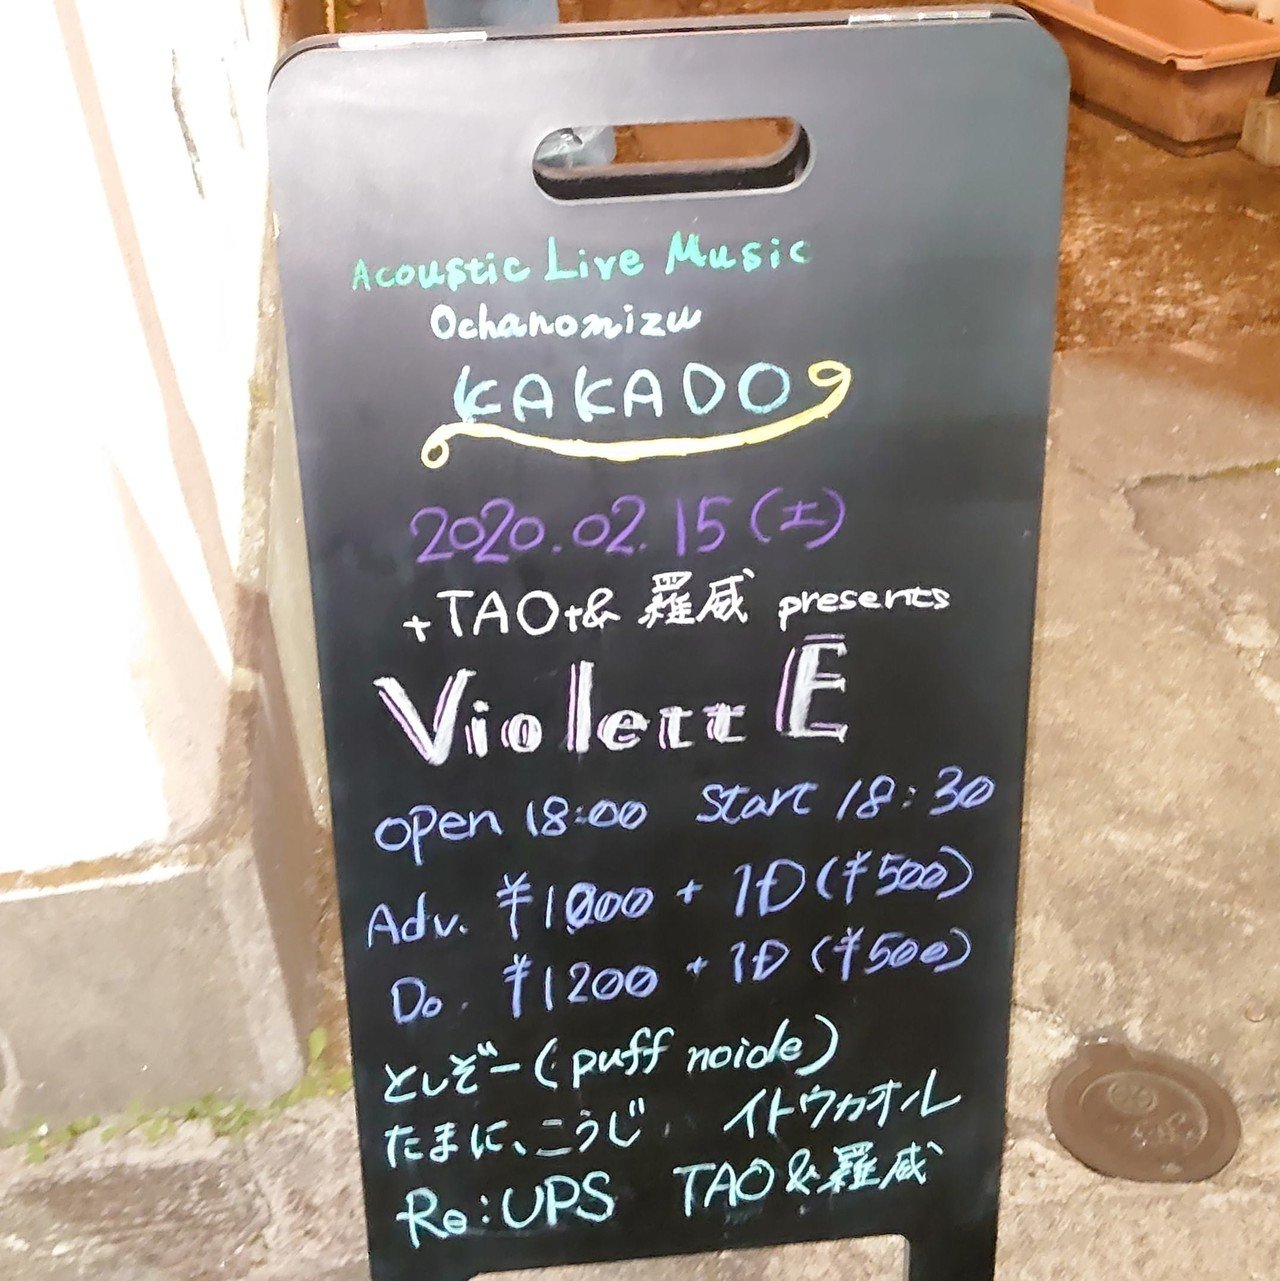 Acoustic Live Music
Ochanomizu
KAKADO
2020.02.15(土)
+TAO+&羅威 presents
ViolettE
open 18:00 Start 18:30
Adv. ¥1000 + 1D(¥500)
Do. ¥1200 + 1D(¥500)
としぞー(puff noide)
たまに、こうじ イトウカオル
Re:UPS TAO&羅威